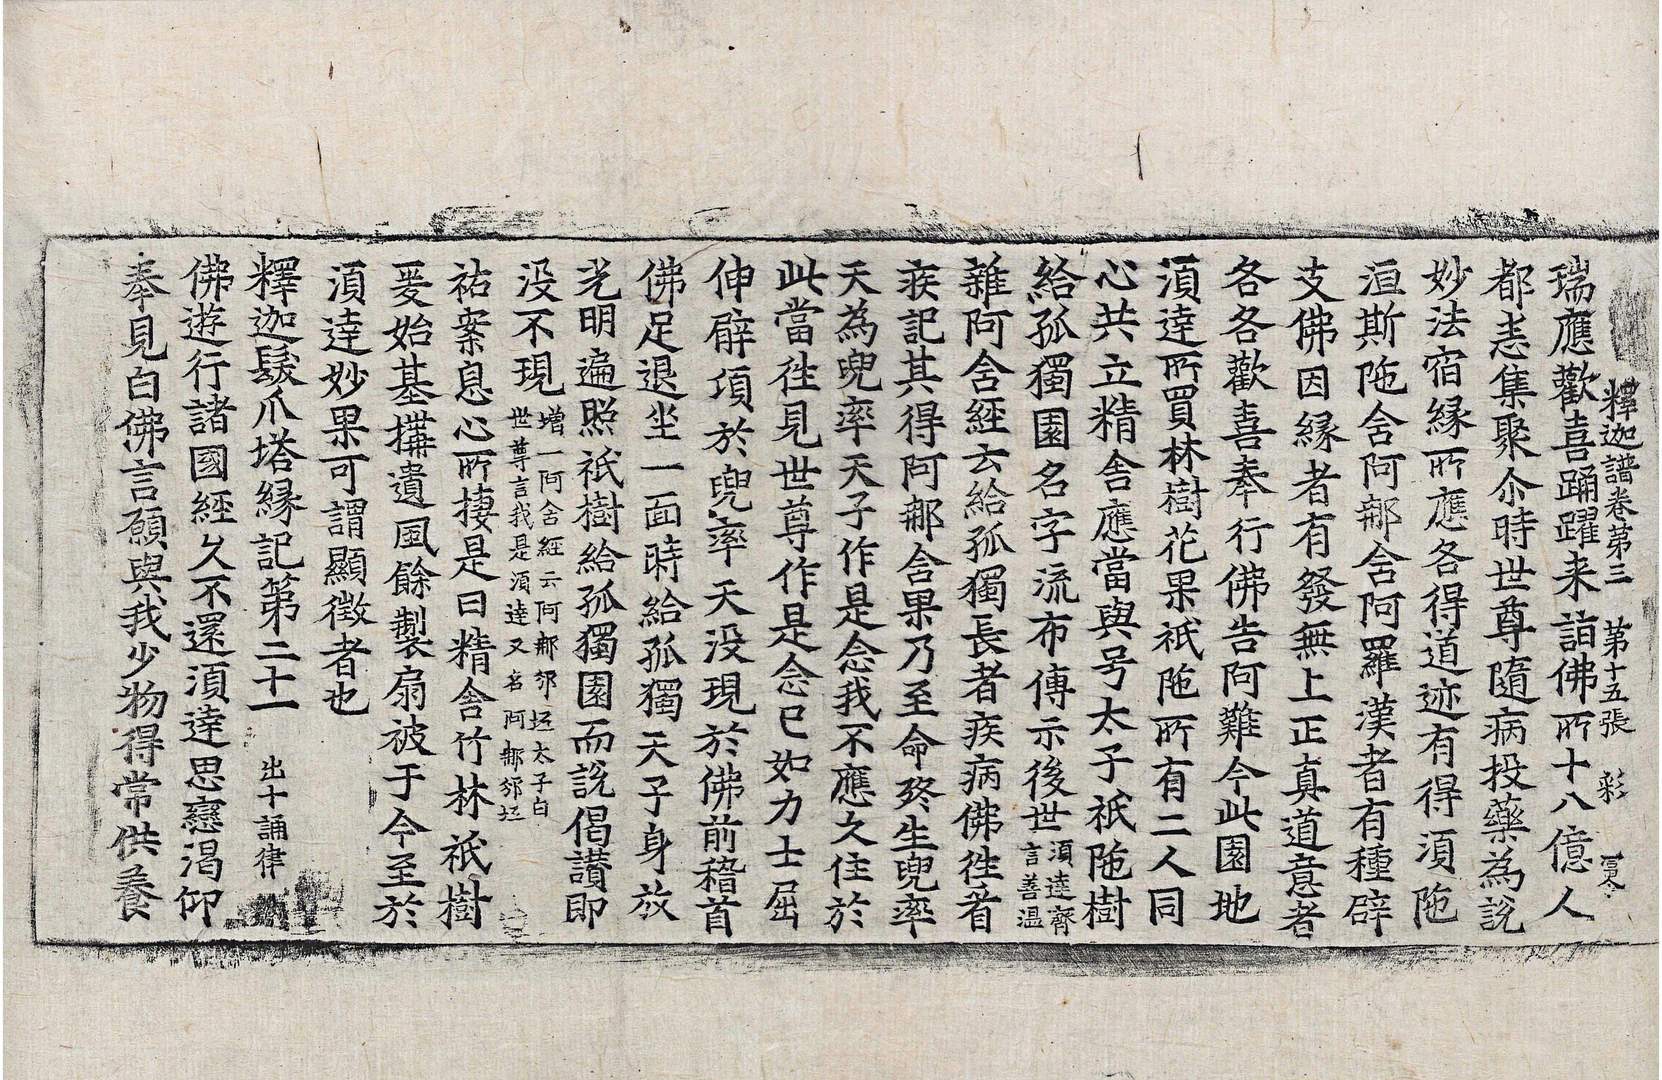 釋迦譜卷第三 第十五張 彩
瑞應歡喜踊躍来詣佛所十八億人
都悉集聚尒時世尊隨病投藥為説
妙法宿緣所應各得道迹有得湏陁
洹斯陁含阿那含阿羅漢者有種辟
支佛因緣者有發無上正真道意者
各各歡喜奉行佛告阿難今此園地
湏達所買林樹花果祇陁所有二人同
心共立精舍應當與号太子祇陁樹
給孤獨園名字流布傳示後世湏達齊言善温
雜阿含經云給孤獨長者疾病佛徃看
疾記其得阿那含果乃至命終生兜率
天為兜率天子作是念我不應久住於
此當徃見世尊作是念已如力士屈
伸臂項於兜率天没現於佛前稽首
佛足退坐一面時給孤獨天子身放
光明遍照祇樹給孤獨園而説偈讃即
没不現增一阿含經云阿那邠坻太子白世尊言我是湏達又名阿那邠坻
祐案息心所棲是曰精舍竹林祇樹
爰始基搆遺風餘製扇被于今至於
湏達妙果可謂顯徵者也
釋迦髮爪塔緣記第二十一 出十誦律
佛遊行諸國經久不還湏達思戀渴仰
奉見白佛言願與我少物得常供養